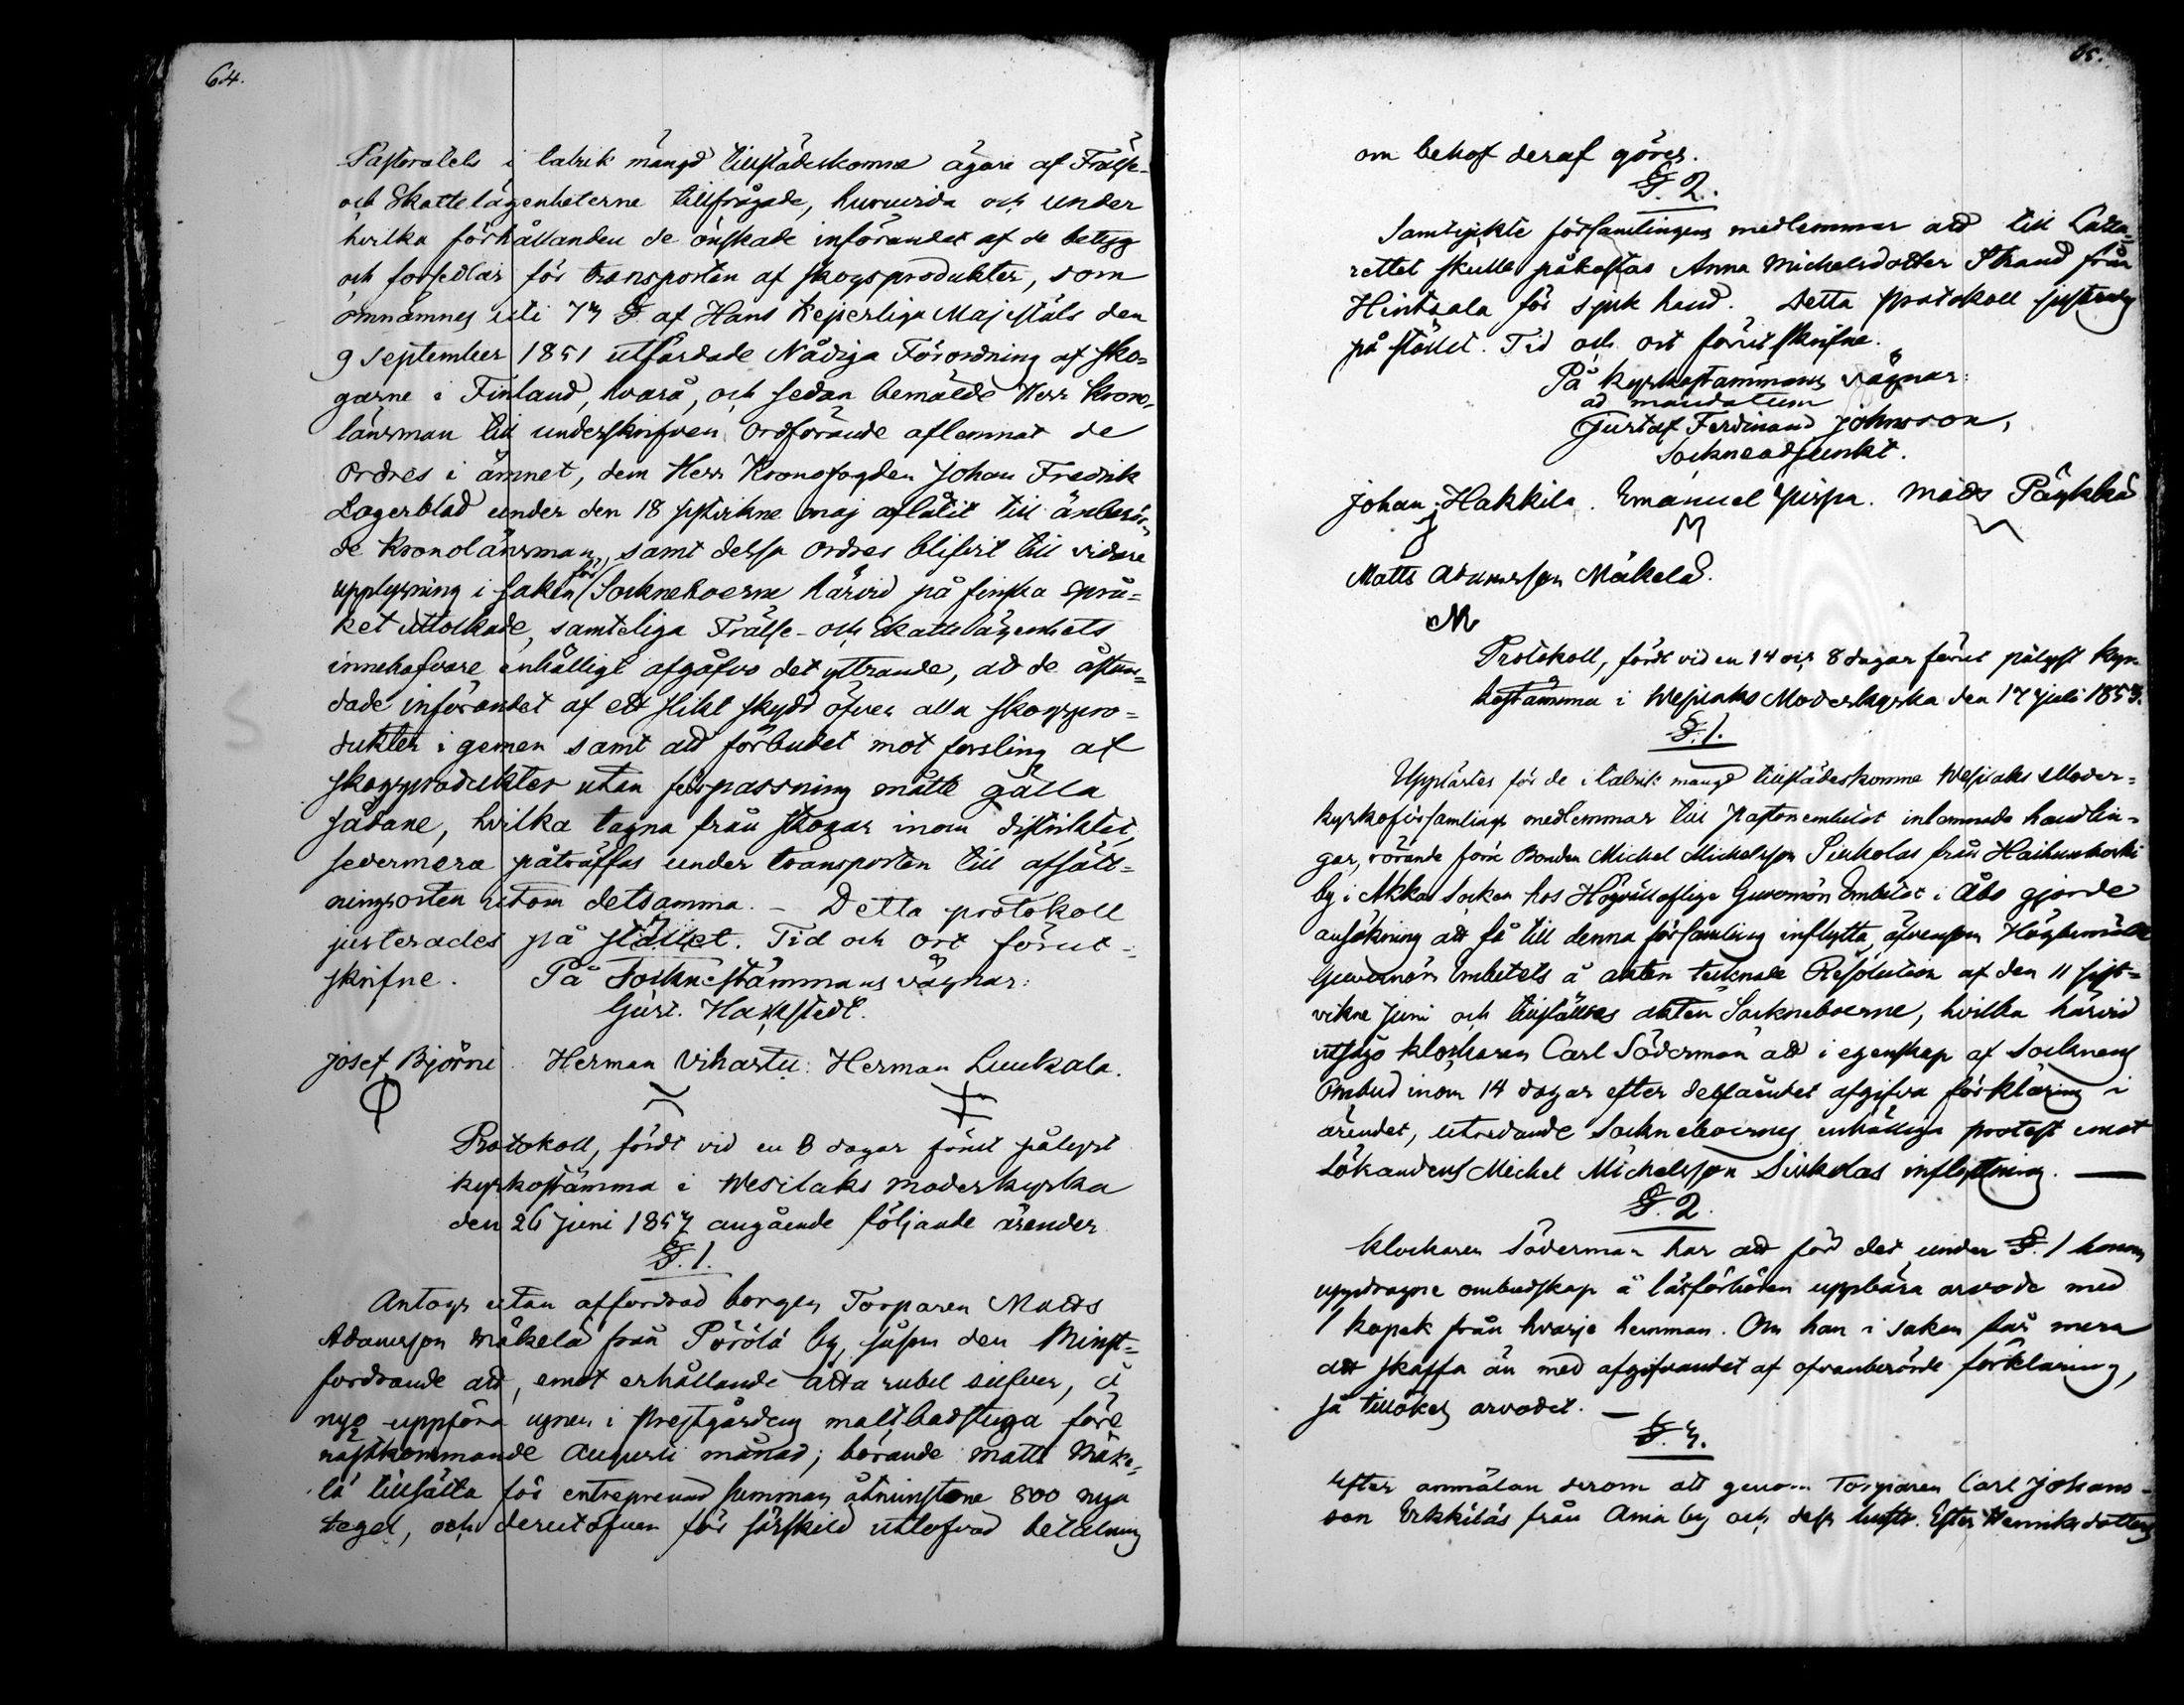 64.
Pastoratets i talrik mängd tillstädeskomne ägare af Frälse-
och Skattelägenheterne tillfrågade, huruvida och under
hvilka förhållanden de önskade införandet af de betyg
och forsedlar för transporten af skogsprodukter, som
omnämnes uti 73 §. af Hans Kejserliga Majestäts den
9 September 1851 utfärdade Nådiga Förordning af sko-
garne i Finland, hvarå, och sedan bemälde Herr Krono-
länsman till underskrifven Ordförande aflemnat de
Ordres i ämnet, dem Herr Kronofogden Johan Fredrik
Lagerblad under den 18 sistvikne maj aflåtit till änberör-
de Kronolänsman, samt dessa ordres blifvit till vidare
upplysning i saken för Socknehoerne härvid på finska språ-
ket uttolkade, samteliga Frälse- och Skattelägenhets
innehafvare enhälligt afgåfvo det yttrande, att de åstun-
dade införandet af ett slikt skydd öfver alla skogspro-
dukter i gemen samt att förbudet mot forsling af
skogsprodukter utan förpassning måtte gälla
sådane, hvilka tagna från skogar inom distriktet,
sedermera påträffas under transporten till afsätt-
ningsorten utom detsamma. - Detta protokoll
justerades på stället. Tid och ort förut-
skrifne. På Socknestämmans vägnar:
Gust. Hakkstedt.
Josef Björni. Herman Vihartu. Herman Luukala.
Protokoll, fördt vid en 8 dagar förut pålyst
kyrkostämma i Wesilaks moderkyrka
den 26 Juni 1853 angående följande ärender
§. 1.
Antogs utan affordrad borgen Torparen Matts
Adamsson Mäkelä från Pörölä by, såsom den Minst-
fordrande att, emot erhållande åtta rubel silfver, å
nyo uppföra ugnen i Prestgårdens malt badstuga före
nästkommande Augusti månad; börande Matts Mäke-
lä tillsätta för entreprenad summan åtminstone 800 nya
tegel, och derutöfver för särskild utlofvad betalning
65.
om behof deraf göres.
§. 2.
Samtyckte församlingens medlemmar att till Laza-
rettet skulle påkostas Anna Michelsdotter Strand från
Hintsala för sjuk hand. Detta protokoll justerades
på stället. Tid och ort förutskrifne.
På kyrkostämmans vägnar:
ad mandatum
Gustaf Ferdinand Johnsson,
Sockneadjunkt.
Johan Hakkila. Emanuel Yispa. Matts Päykkiä
Matts Adamsson Mäkelä.
Protokoll, fördt vid en 14 och 8 dagar förut pålyst kyr-
kostämma i Wesilaks Moderkyrka den 17 Juli 1853.
§. 1.
Upplästes för de i talrik mängd tillstädeskomne Wesilaks Moder-
kyrkoförsamlings medlemmar till Pastorsembetet inlemnade handlin-
gar, rörande förre Bonden Michel Michelsson Sinkolas från Haihunkoski
by i Akkas Socken hos Högvällofliga Guvernörs Embetet i Åbo gjorde
ansökning att få till denna församling inflytta, äfvensom Högbemälde
Guvernörs Embetets å akten tecknade Resolution af den 11 sist-
vikne Juni och tillställdes akten Socknehoerne, hvilka härvid
utsågo klockaren Carl Söderman att i egenskap af Socknens
Ombud inom 14 dagar efter delfåendet afgifva förklaring i
ärendet, utvidande Socknehoernes enhälliga protest emot
Sökandens Michel Michelsson Sinkolas inflyttning.
§. 2.
Klockaren Söderman har att för det under §. 1 honom
uppdragne ombudskap å läsförhören uppbära arvode med
1 kopek från hvarje hemman. Om han i saken får mera
att skaffa än med afgifvandet af ofvanberörde förklaring,
så tillökes arvodet.
§. 3.
Efter anmälan derom att genom Torparen Carl Johans-
son Erkkiläs från Ania by och dess hustr. Ester Henriksdotters